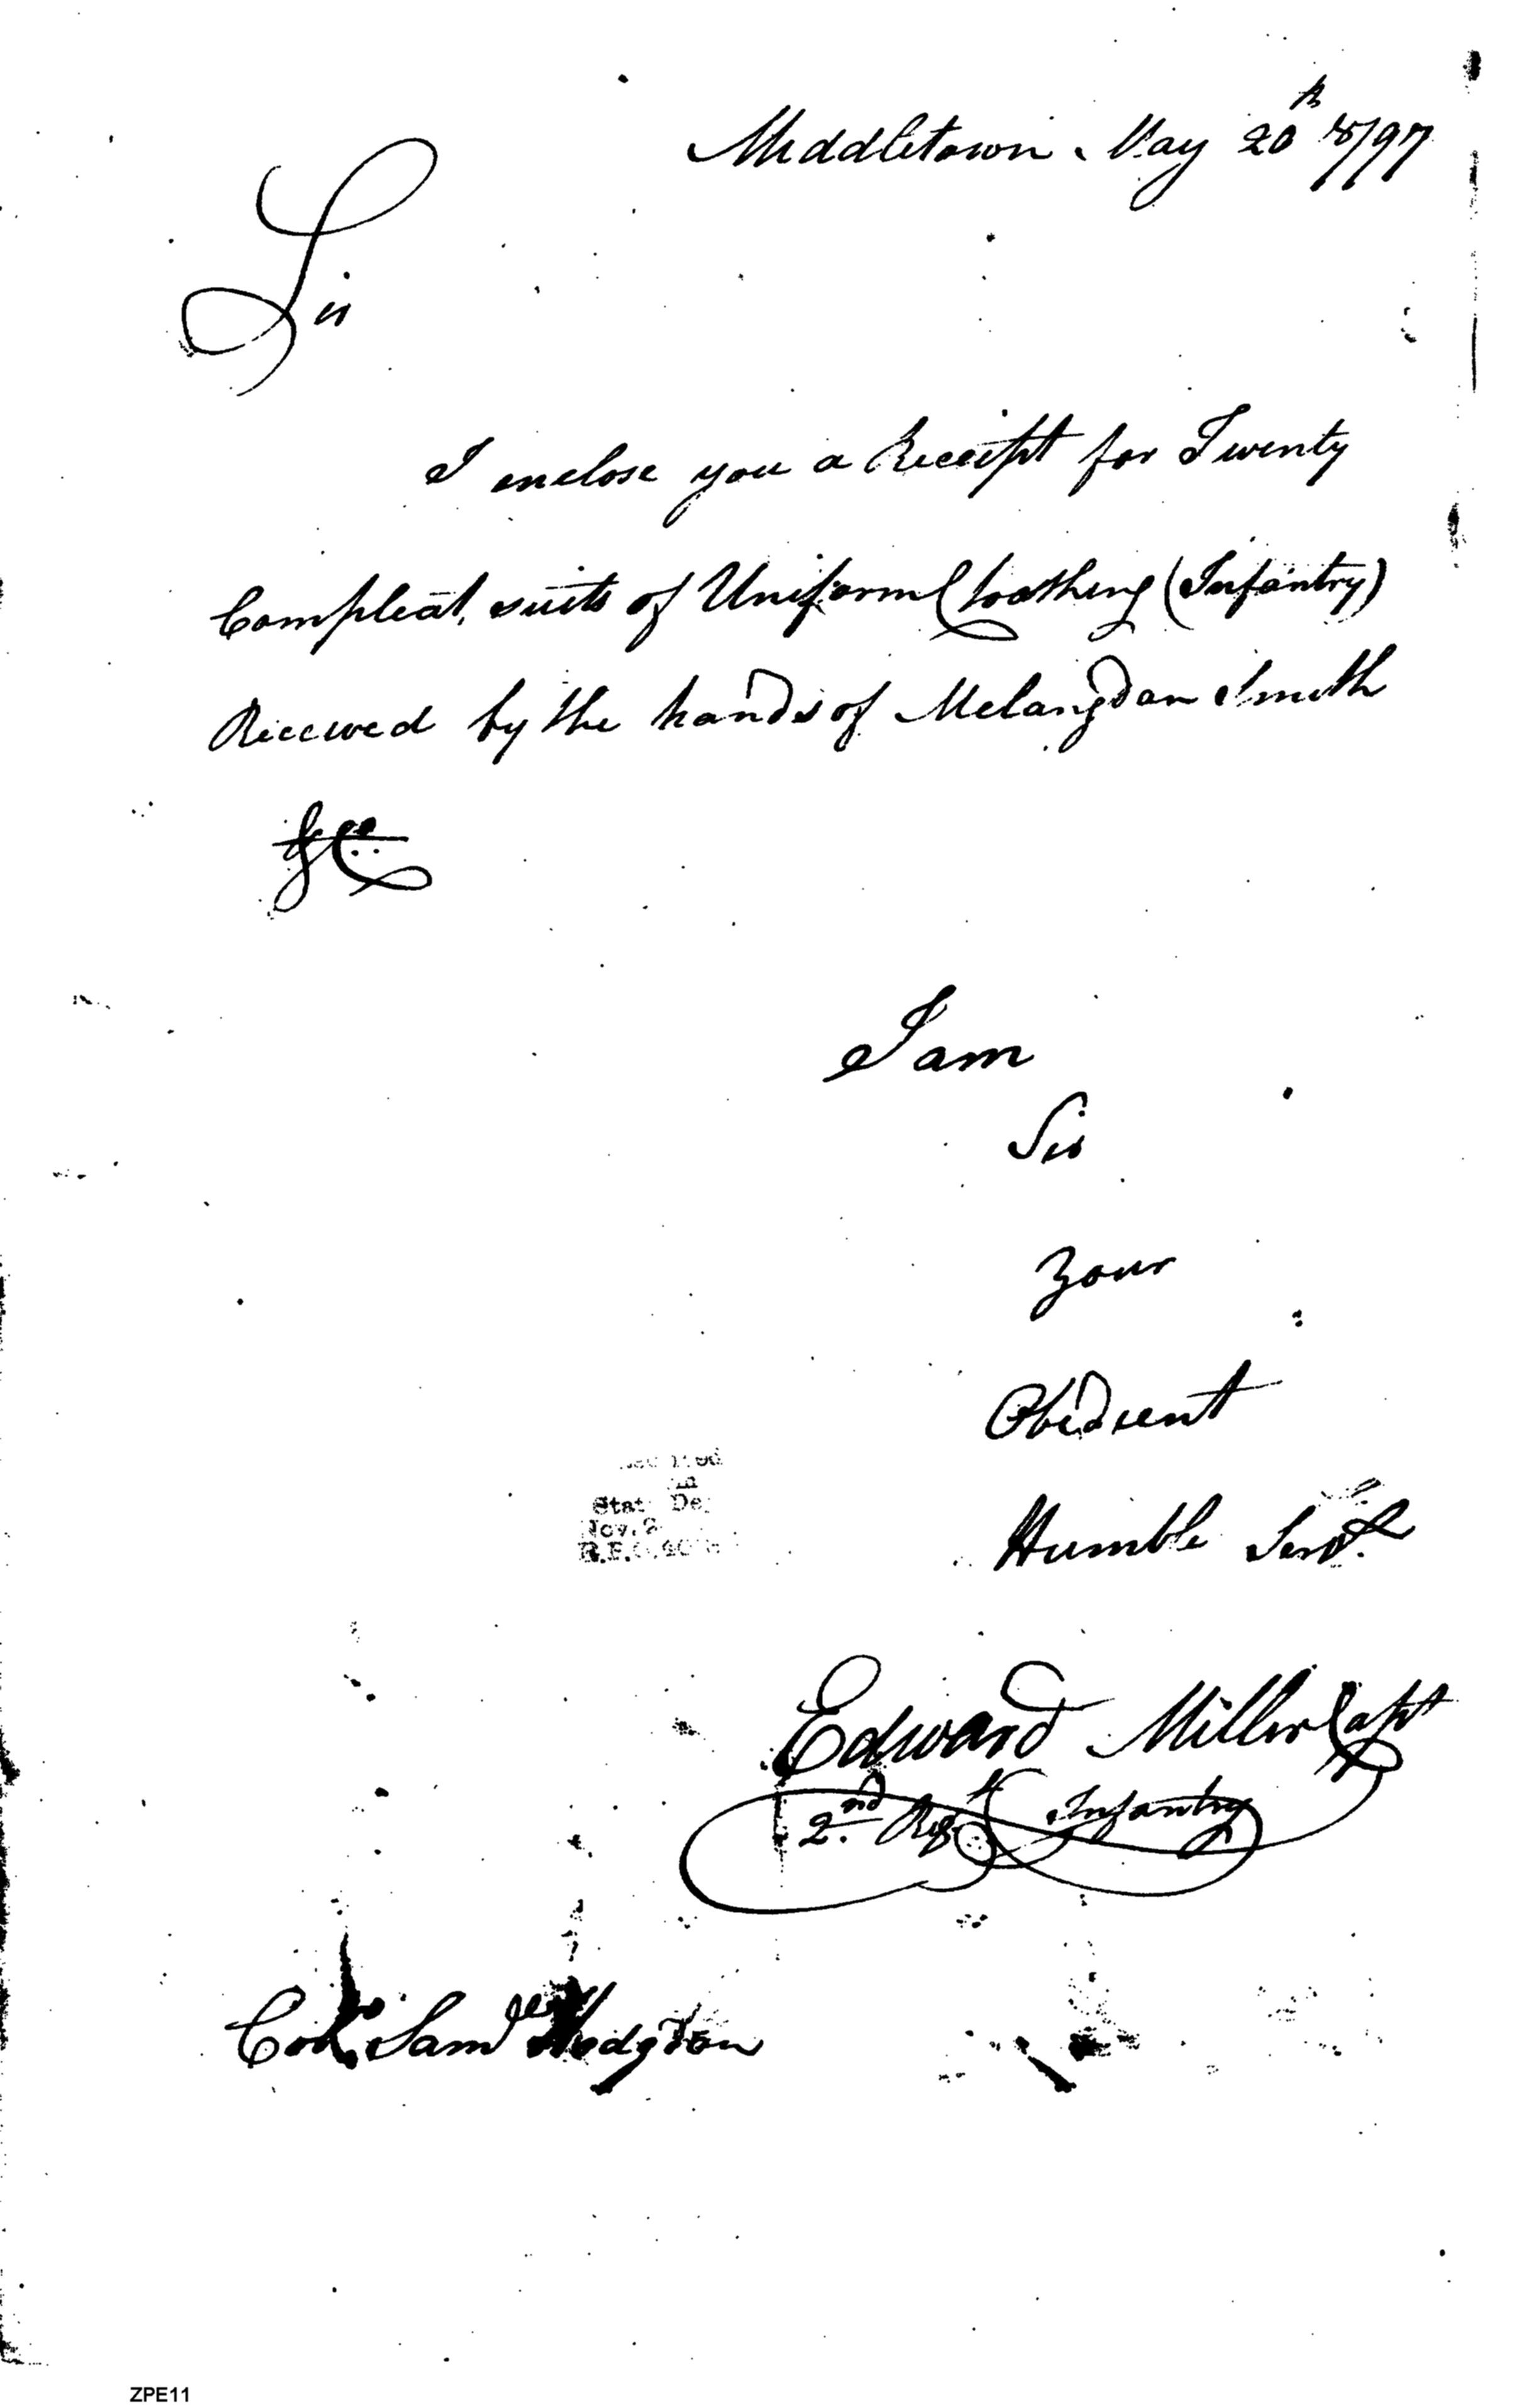 Middletown May 20th 1797
Sir
I enclose you a Receipt for Twenty
Compleat, suits of Uniform Cloathing (Infantry)
Received by the hands of Melangdon Smith
&c
I am
Sir
Your
Obedient
Humble Servt
Edward Miller Capt
2nd Regt Infantry
Col. Saml Hodgdon
ZPE11